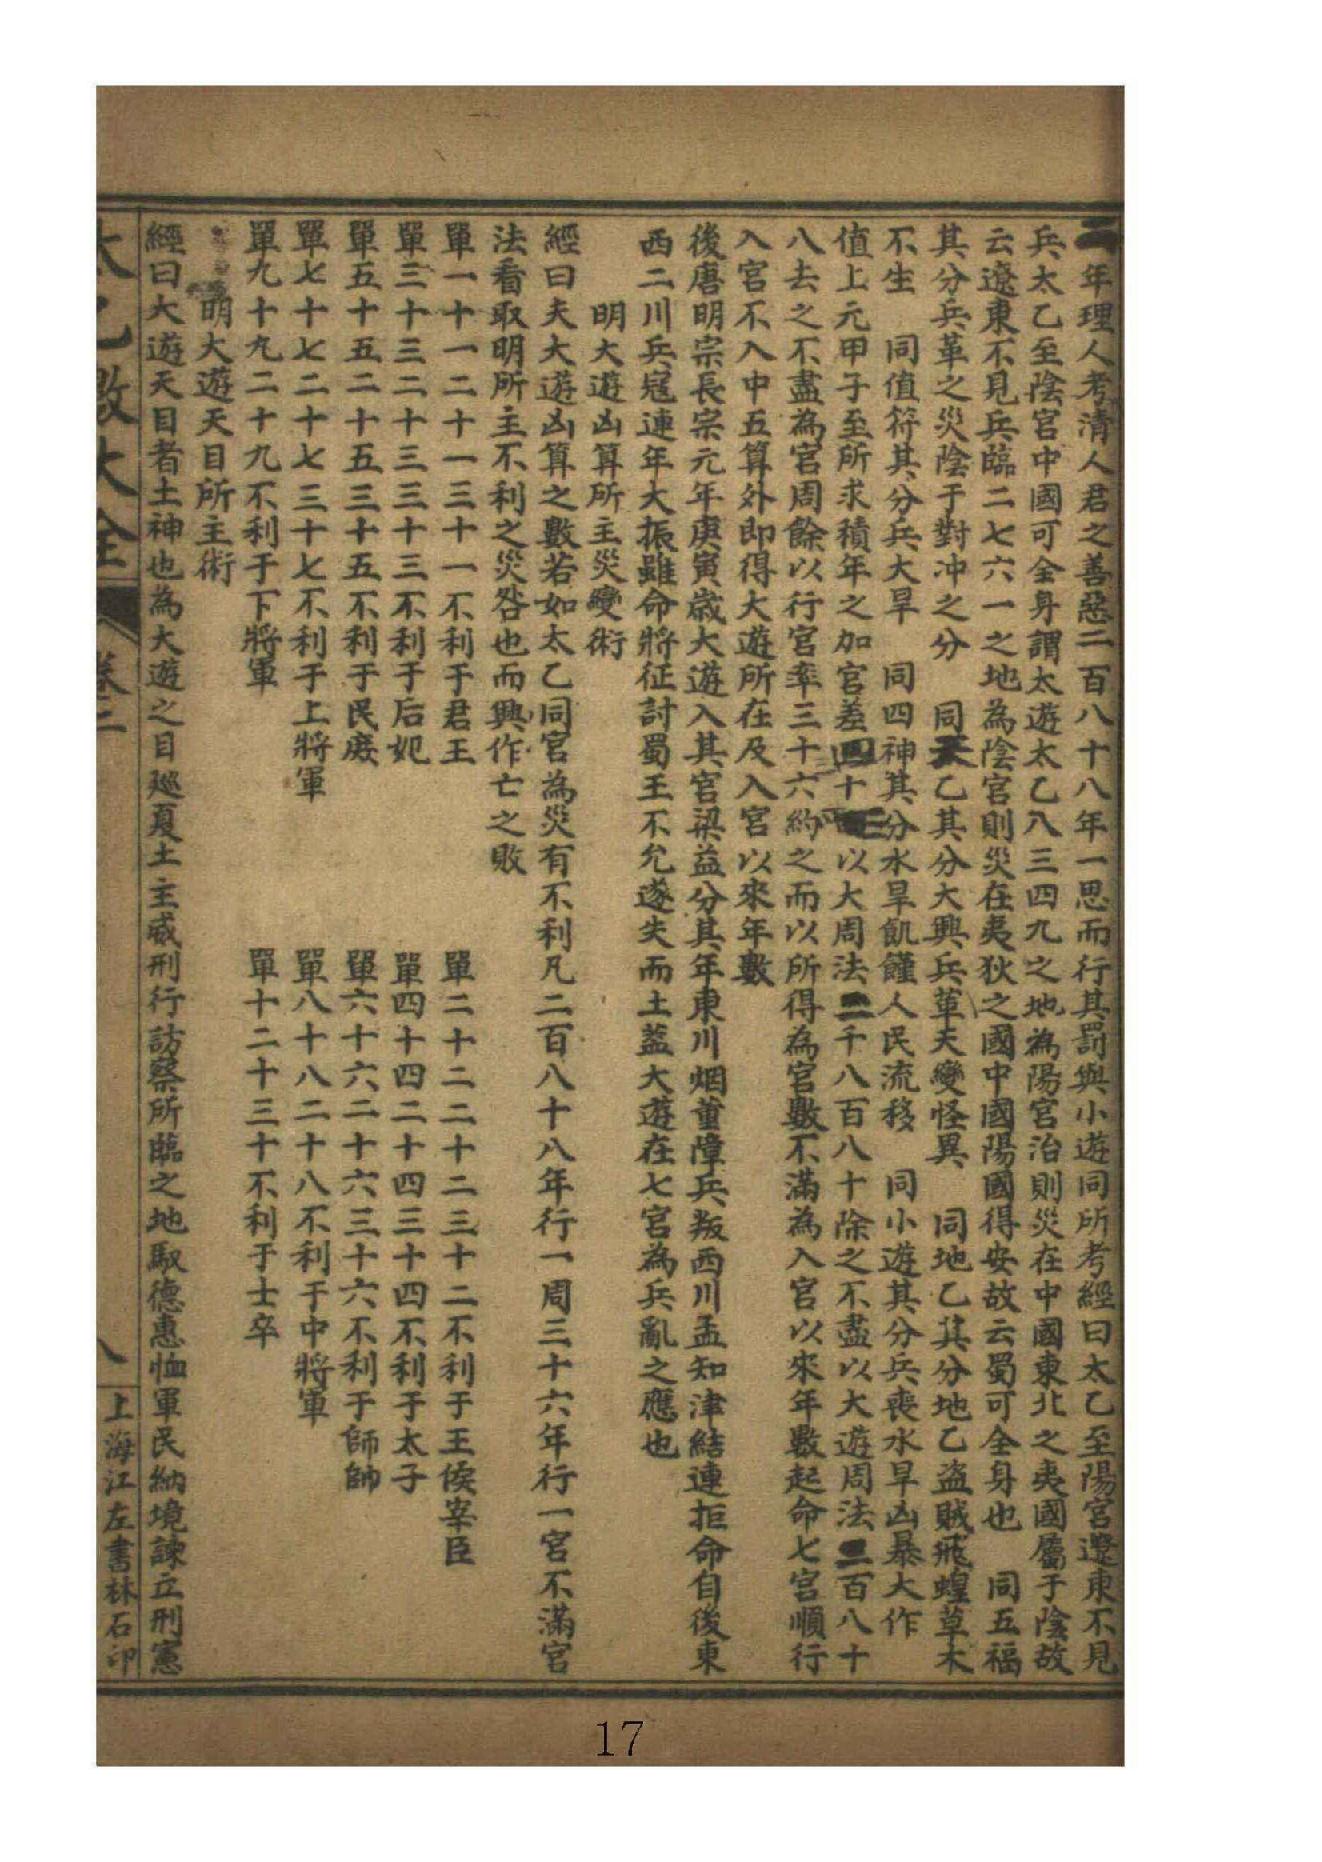 二年理人考清人君之善惡二百八十八年一思而行其罰與小遊同所考經曰太乙至陽宮遼東不見
兵太乙至陰宮中國可全身謂太遊太乙八三四九之地為陽宮治則災在中國東北之夷國屬于陰故
云遼東不見兵臨二七六一之地為陰宮則災在夷狄之國中國陽國得安故云蜀可全身也　同五福
其分兵革之災陰于對冲之分　同天乙其分大興兵革天變怪異　同地乙其分地乙盗賊飛蝗草木
不生　同值符其分兵大旱　同四神其分水旱飢饉人民流移　同小遊其分兵喪水旱凶暴大作
值上元甲子至所求積年之加宮差四十以大周法二千八百八十除之不盡以大遊周法二百八十
八去之不盡為宮周餘以行宮率三十六約之而以所得為宮數不滿為入宮以來年數起命七宮順行
入宮不入中五算外即得大遊所在及入宮以來年數
後唐明宗長宗元年庚寅歲大遊入其宮梁益分其年東川烟董障兵叛西川孟知津結連拒命自後東
西二川兵寇連年大振雖命將征討蜀王不允遂失而土蓋大遊在七宮為兵亂之應也
明大遊凶算所主災變術
經曰夫大遊凶算之數若如太乙同宮為災有不利凡二百八十八年行一周三十六年行一宮不滿宮
法看取明所主不利之災咎也而興作亡之敗
單一十一二十一三十一不利于君王　單二十二二十二三十二不利于王侯宰臣
單三十三二十三三十三不利于后妃　單四十四二十四三十四不利于太子
單五十五二十五三十五不利于民廢　單六十六二十六三十六不利于師帥
單七十七二十七三十七不利于上將軍　單八十八二十八不利于中將軍
單九十九二十九不利于下將軍　單十二十三十不利于士卒
明大遊天目所主術
經曰大遊天目者土神也為大遊之目廵夏土主戚刑行訪察所臨之地馭德惠恤軍民納境諫立刑憲
太乙數大全　卷二　八　上海江左書林石印
17